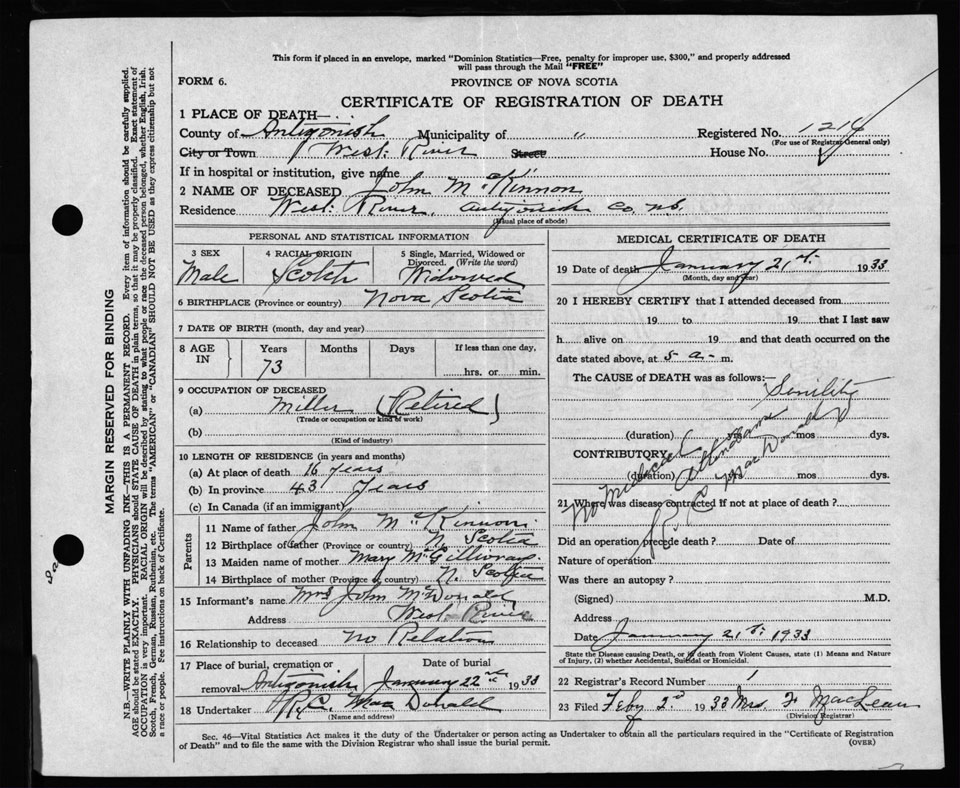 This form if placed in an envelope, marked "Dominion Statistics—Free, penalty for improper use, $300," and properly addressed
will pass through the Mail "FREE"
FORM 6.
PROVINCE OF NOVA SCOTIA
CERTIFICATE OF REGISTRATION OF DEATH
1 PLACE OF DEATH—
County of Antigonish Municipality of " Registered No. 1214
(For use of Registrar General only)
City or Town West River Street House No.
If in hospital or institution, give name
2 NAME OF DECEASED John McKinnon
Residence West River, Antigonish Co. N.S.
(Usual place of abode)
PERSONAL AND STATISTICAL INFORMATION
3 SEX 4 RACIAL ORIGIN 5 Single, Married, Widowed or
Divorced. (Write the word)
Male Scotch Widowed
6 BIRTHPLACE (Province or country) Nova Scotia
7 DATE OF BIRTH (month, day and year)
8 AGE Years Months Days If less than one day,
IN 73 hrs. or min.
9 OCCUPATION OF DECEASED
(a) Miller (Retired)
(Trade or occupation or kind of work)
(b)
(Kind of industry)
10 LENGTH OF RESIDENCE (in years and months)
(a) At place of death 16 years
(b) In province 43 years
(c) In Canada (if an immigrant)
Parents
11 Name of father John McKinnon
12 Birthplace of father (Province or country) N. Scotia
13 Maiden name of mother Mary McGillivray
14 Birthplace of mother (Province or country) N. Scotia
15 Informant's name Mrs John McDonald
Address West River
16 Relationship to deceased No Relation
17 Place of burial, cremation or Date of burial
removal Antigonish January 22nd 1933
18 Undertaker R. C. MacDonald
(Name and address)
MEDICAL CERTIFICATE OF DEATH
19 Date of death January 21st 1933
(Month, day and year)
20 I HEREBY CERTIFY that I attended deceased from
19 to 19 that I last saw
h alive on 19 and that death occurred on the
date stated above, at 5 a.- m.
The CAUSE of DEATH was as follows:— Senility
(duration) yrs mos dys.
CONTRIBUTORY
(duration) yrs mos dys.
No Medical Attendance
R C MacDonald
21 Where was disease contracted if not at place of death?
Did an operation precede death? Date of
Nature of operation
Was there an autopsy?
(Signed) M.D.
Address
Date January 21st: 1933
State the Disease causing Death, or in death from Violent Causes, state (1) Means and Nature
of Injury, (2) whether Accidental, Suicidal or Homicidal.
22 Registrar's Record Number 1
23 Filed Feby 2d 1933 Mrs. F MacLean
(Division Registrar)
Sec. 46—Vital Statistics Act makes it the duty of the Undertaker or person acting as Undertaker to obtain all the particulars required in the "Certificate of Registration
of Death" and to file the same with the Division Registrar who shall issue the burial permit.
(OVER)
MARGIN RESERVED FOR BINDING
N.B.—WRITE PLAINLY WITH UNFADING INK—THIS IS A PERMANENT RECORD. Every item of information should be carefully supplied.
AGE should be stated EXACTLY. PHYSICIANS should STATE CAUSE OF DEATH in plain terms, so that it may be properly classified. Exact statement of
OCCUPATION is very important. RACIAL ORIGIN will be described by stating to what people or race the deceased person belonged, whether English, Irish,
Scotch, French, German, Russian, Ruthenian, etc. The terms "AMERICAN" or "CANADIAN" SHOULD NOT BE USED as they express citizenship but not
a race or people. Fee instructions on back of Certificate.